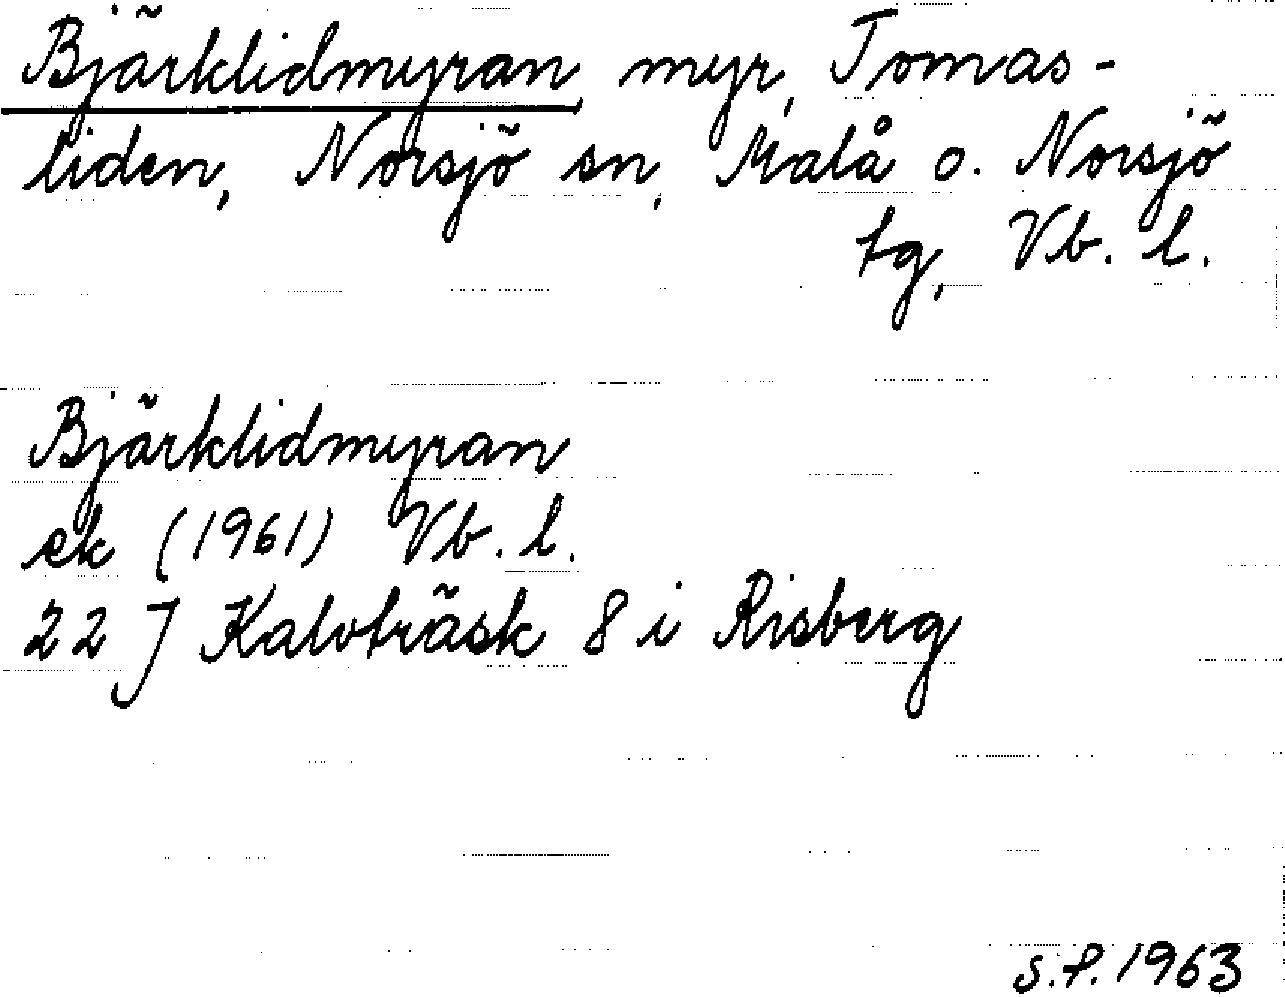 Bjärklidmyran, myr, Tomas-
liden, Norsjö sn, Malå o. Norsjö
tg, Vb. l.
Bjärklidmyran
ek (1961) Vb. l.
22 J Kalvträsk 8 i Risberg
S.P. 1963